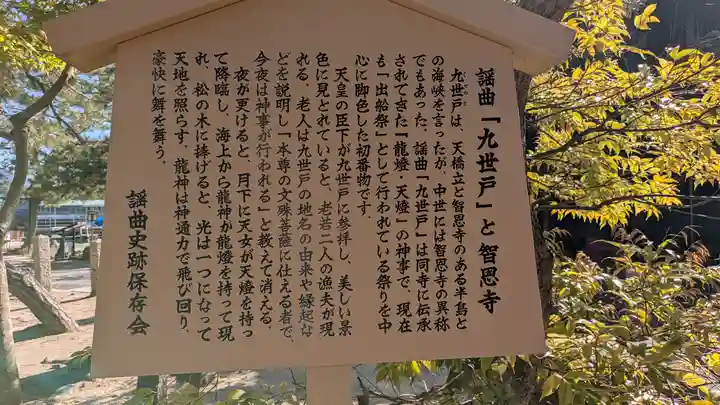 謡曲「九世戸」と智恩寺
九世戸は、天橋立と智恩寺のある半島と
の海峡を言ったが、中世には智恩寺の異称
でもあった。謡曲「九世戸」は同寺に伝承
されてきた「龍燈・天燈」の神事で、現在
も「出船祭」として行われている祭りを中
心に脚色した初番物です。
天皇の臣下が九世戸に参拝し、美しい景
色に見とれていると、老若二人の漁夫が現
れる。老人は九世戸の地名の由来や縁起な
どを説明し「本尊の文殊菩薩に仕える者で、
今夜は神事が行われる」と教えて消える。
夜が更けると、月下に天女が天燈を持っ
て降臨し、海上から龍神が龍燈を持って現
れ、松の木に捧げると、光は一つになって
天地を照らす。龍神は神通力で飛び回り、
豪快に舞を舞う。
謡曲史跡保存会